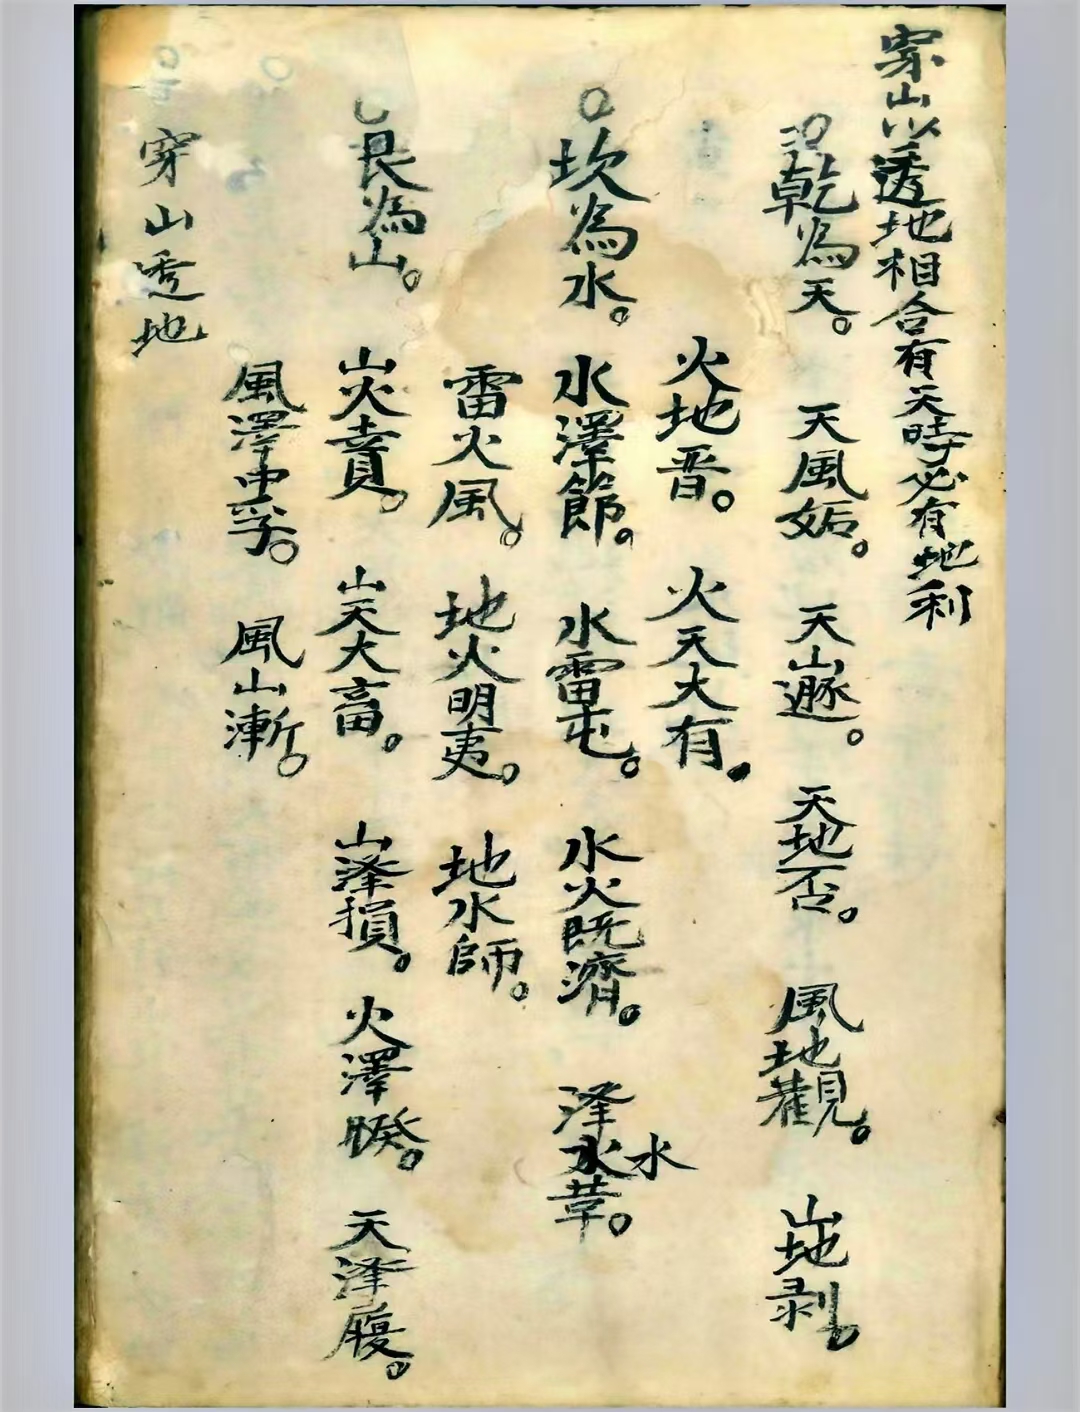 穿山以透地相合有天時必有地利
乾為天。天風姤。天山遯。天地否。風地觀。山地剥。
火地晋。火天大有。
坎為水。水澤節。水雷屯。水火既濟。泽水水革。
雷火風。地火明夷。地水師。
艮為山。山火賁。山天大畜。山泽損。火澤睽。天泽履。
風澤中孚。風山漸。
穿山透地